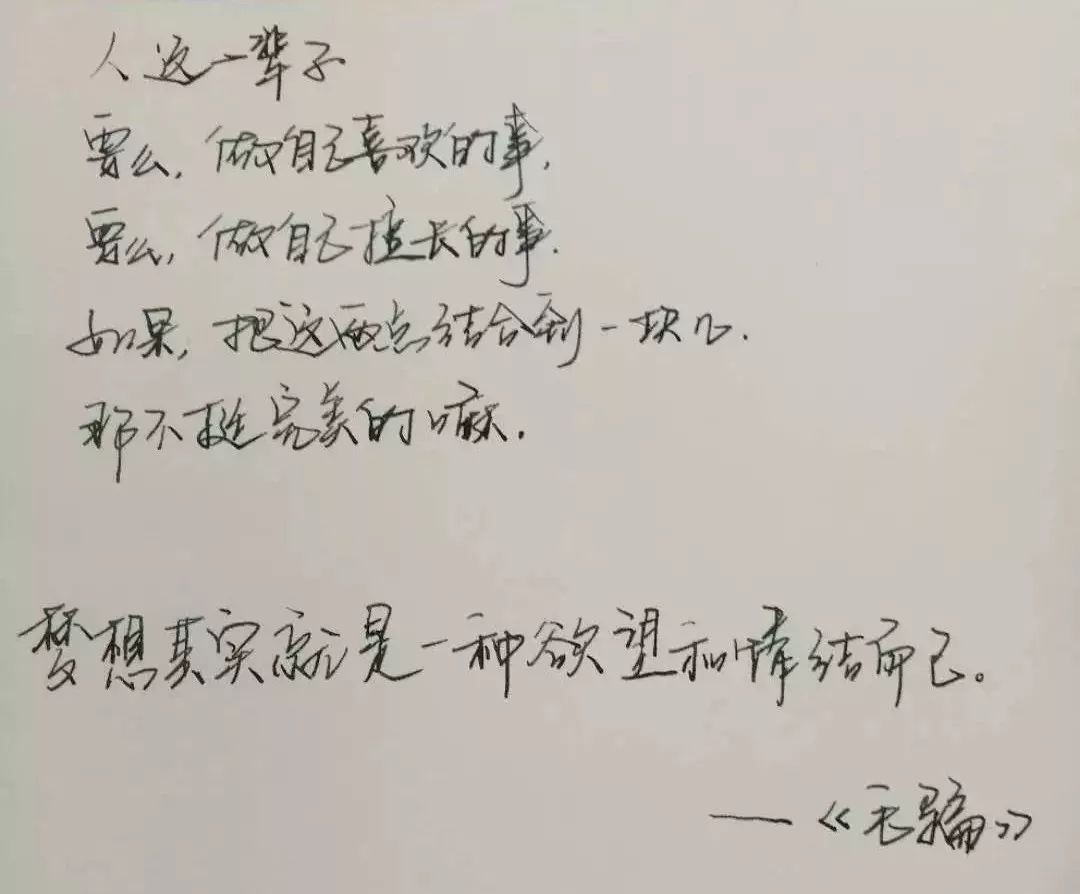 人这一辈子
要么,做自己喜欢的事,
要么,做自己擅长的事.
如果,把这两点结合到一块儿.
那不挺完美的嘛.
梦想其实就是一种欲望和情结而已。
——《无骗》